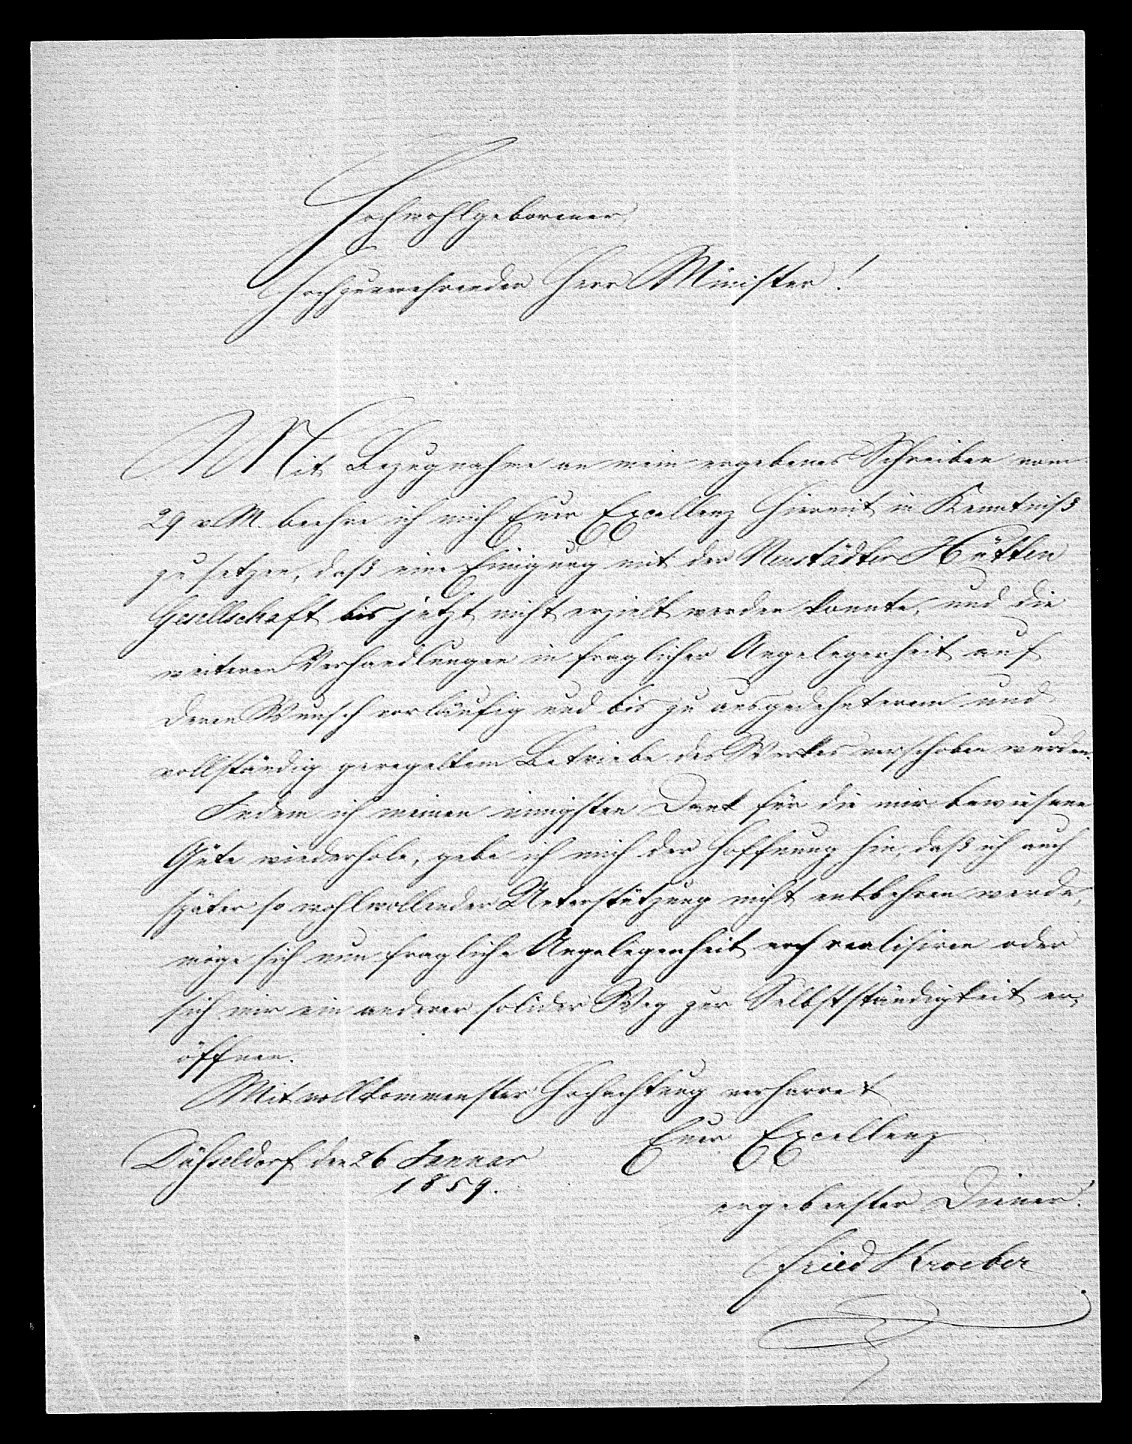 Hochwohlgeborener,
Hochzuverehrender Herr Minister!
Mit Bezugnahme an mein ergebenes Schreiben vom
29 v. M. beehre ich mich Euer Excellenz hiermit in Kenntniß
zu setzen, daß eine Einigung mit der Neustädter Hütten
Gesellschaft bis jetzt nicht erzielt werden konnte, und die
weiteren Verhandlungen in fraglicher Angelegenheit auf
deren Wunsch vorläufig und bis zu ausgedehnterem und
vollständig geregeltem Betriebe des Werkes verschoben wurden.
Indem ich meinen innigsten Dank für die mir bewiesene
Güte wiederhole, gebe ich mich der Hoffnung hin, daß ich auch
später so wohlwollender Unterstützung nicht entbehren werde,
möge sich nun fragliche Angelegenheit noch realisiren oder
sich mir ein anderer solider Weg zur Selbstständigkeit er-
öffnen.
Mit vollkommenster Hochachtung verharret
Euer Excellenz
Düsseldorf den 26 Januar
1859.
ergebenster Diener.
Fried Kroeber